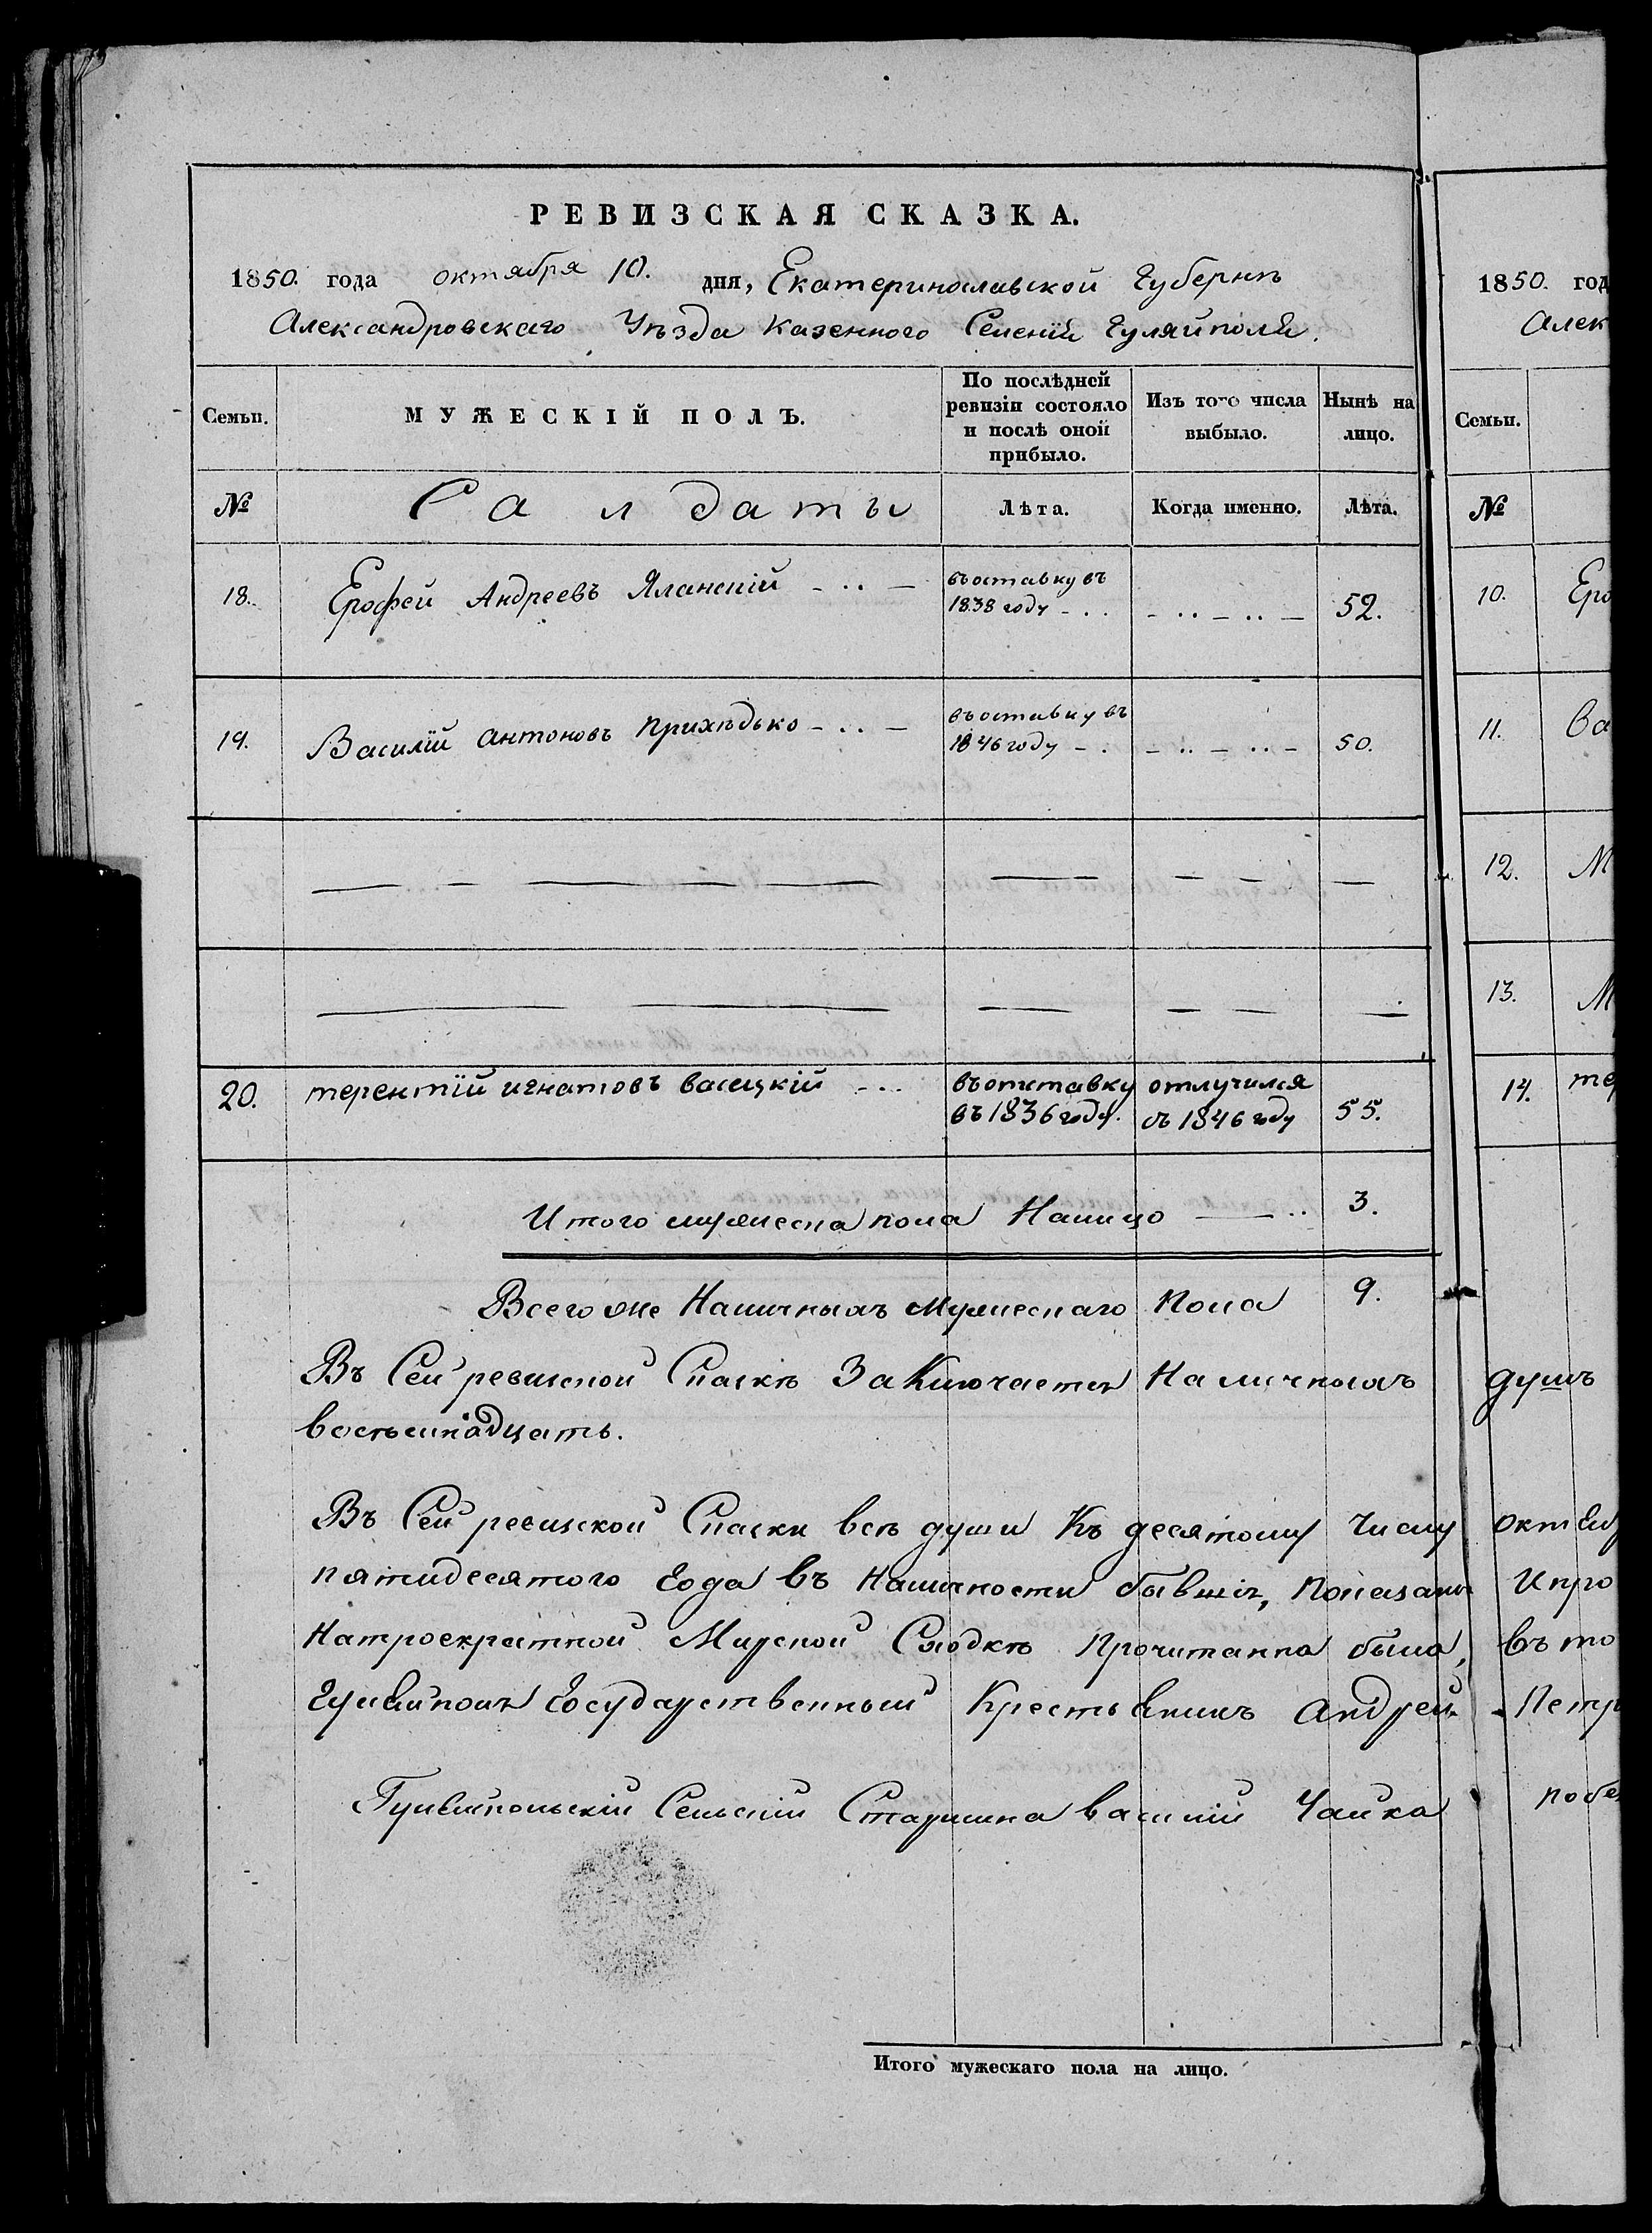 РЕВИЗСКАЯ СКАЗКА.
1850. года октября 10. дня, Екатеринославской Губернѣ
Александровскаго Уѣзда Казенного Селенія Гуляйполя.
Семьи.
МУЖЕСКІЙ ПОЛЪ.
По послѣдней ревизіи состояло и послѣ оной прибыло.
Изъ того числа выбыло.
Нынѣ на лицо.
№
Салдаты
Лѣта.
Когда именно.
Лѣта.
18. Ерофей Андреевъ Яланскій въ оставку въ 1838 году 52.
19. Василій Антоновъ Прихѣдько въ оставку въ 1846 году 50.
20. терентій игнатовъ васецкій въ отставку отлучился 55.
въ 1836 году. съ 1846 году
Итого мужеска пола Налицо 3.
Всего же Наличныхъ Мужескаго Пола 9.
Въ Сей ревизской Скаскѣ Заключается Наличныхъ душъ
восемьнадцать.
Въ Сей ревизской Скаски всѣ души Къ десятому Числу
пятидесятого Года въ Наличности бывшіе, Показаны
Натроекратной Мирской Сходкѣ Прочитанна была,
Гуляйполя Государственный Крестьянинъ Андрей
Гуляйпольскій Сельскій Старшина Василій Чайка
Итого мужескаго пола на лицо.
1850. год
Алек
Семьи.
№
10. Еро
11. Ва
12. М
13. М
14. тер